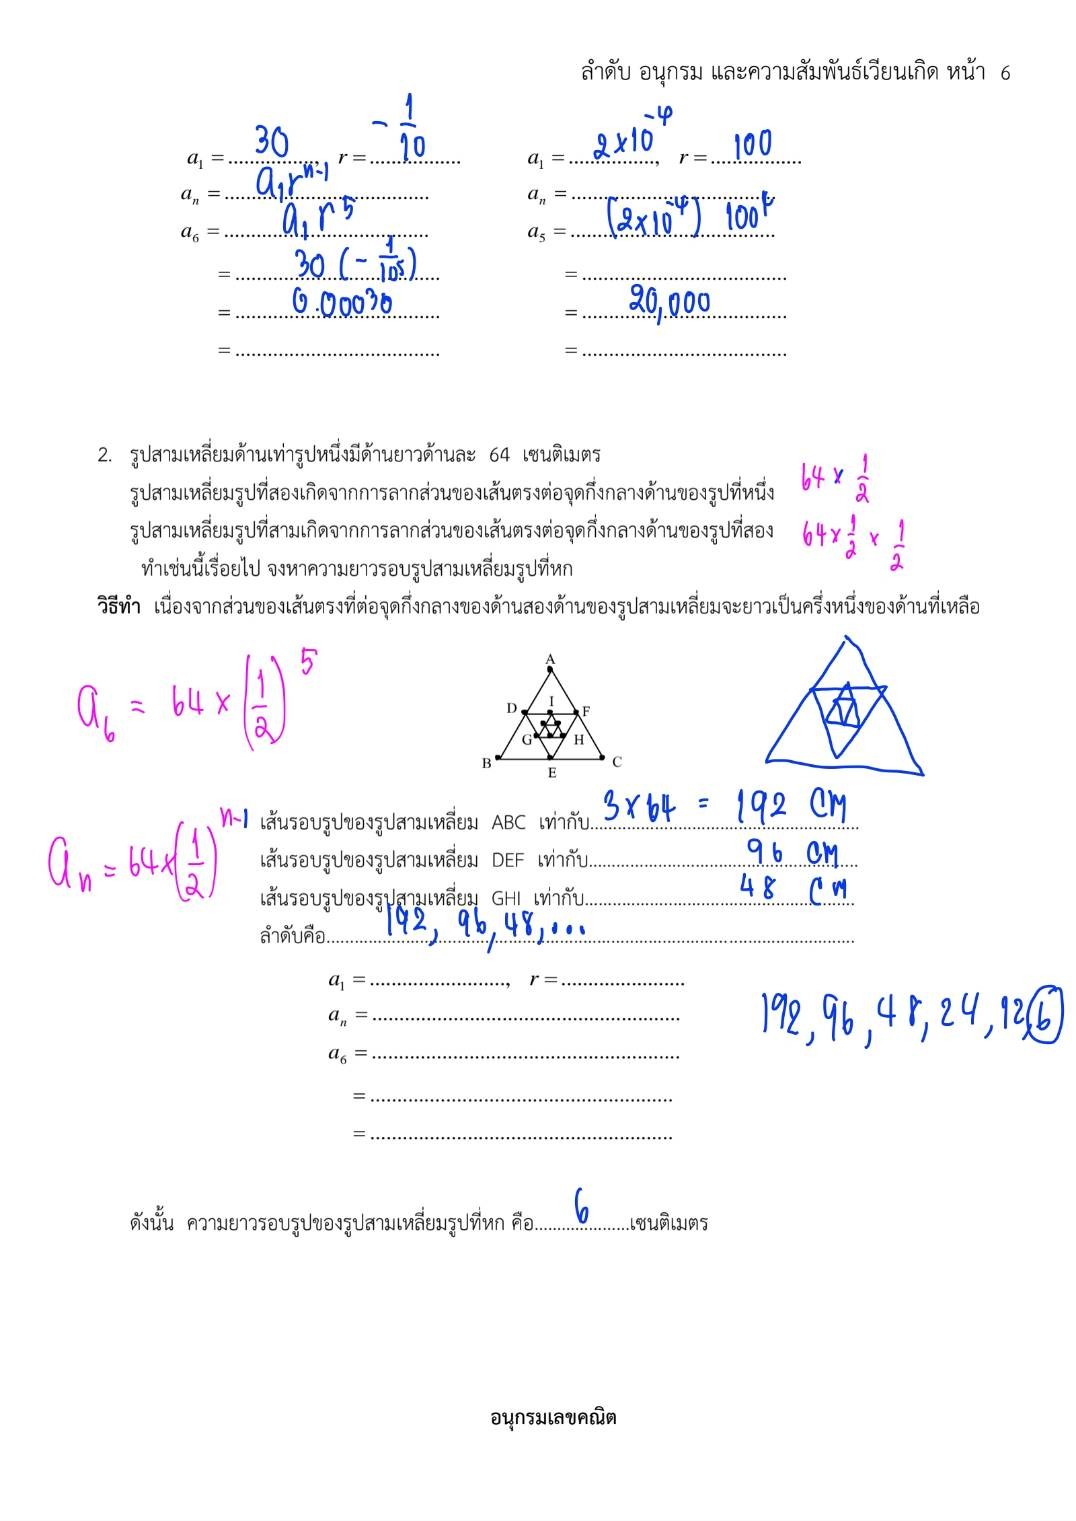 ลำดับ อนุกรม และความสัมพันธ์เวียนเกิด หน้า 6
a₁ = 30, r = -1/10
a₁ = 2×10⁻⁴, r = 100
aₙ = a₁rⁿ⁻¹
aₙ =
a₆ = a₁ r⁵
a₅ = (2×10⁻⁴) 100⁴
= 30 (-1/10⁵)
=
= 0.00030
= 20,000
=
=
2. รูปสามเหลี่ยมด้านเท่ารูปหนึ่งมีด้านยาวด้านละ 64 เซนติเมตร
รูปสามเหลี่ยมรูปที่สองเกิดจากการลากส่วนของเส้นตรงต่อจุดกึ่งกลางด้านของรูปที่หนึ่ง 64 × 1/2
รูปสามเหลี่ยมรูปที่สามเกิดจากการลากส่วนของเส้นตรงต่อจุดกึ่งกลางด้านของรูปที่สอง 64 × 1/2 × 1/2
ทำเช่นนี้เรื่อยไป จงหาความยาวรอบรูปสามเหลี่ยมรูปที่หก
วิธีทำ เนื่องจากส่วนของเส้นตรงที่ต่อจุดกึ่งกลางของด้านสองด้านของรูปสามเหลี่ยมจะยาวเป็นครึ่งหนึ่งของด้านที่เหลือ
a₆ = 64 × (1/2)⁵
A
D I F
G H
B E C
aₙ = 64 × (1/2)ⁿ⁻¹
เส้นรอบรูปของรูปสามเหลี่ยม ABC เท่ากับ 3×64 = 192 CM
เส้นรอบรูปของรูปสามเหลี่ยม DEF เท่ากับ 96 CM
เส้นรอบรูปของรูปสามเหลี่ยม GHI เท่ากับ 48 CM
ลำดับคือ 192, 96, 48, ...
a₁ = , r =
aₙ =
192, 96, 48, 24, 12, 6
a₆ =
=
=
ดังนั้น ความยาวรอบรูปของรูปสามเหลี่ยมรูปที่หก คือ 6 เซนติเมตร
อนุกรมเลขคณิต